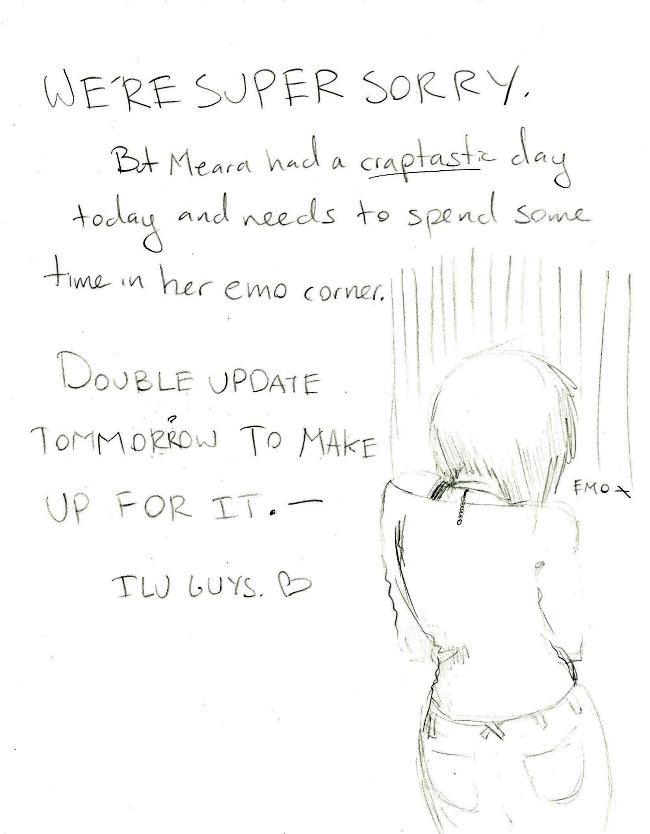 WE'RE SUPER SORRY.
But Meara had a craptastic day
today and needs to spend some
time in her emo corner.
DOUBLE UPDATE
TOMMORROW TO MAKE
UP FOR IT. —
EMO
ILU GUYS. ♡